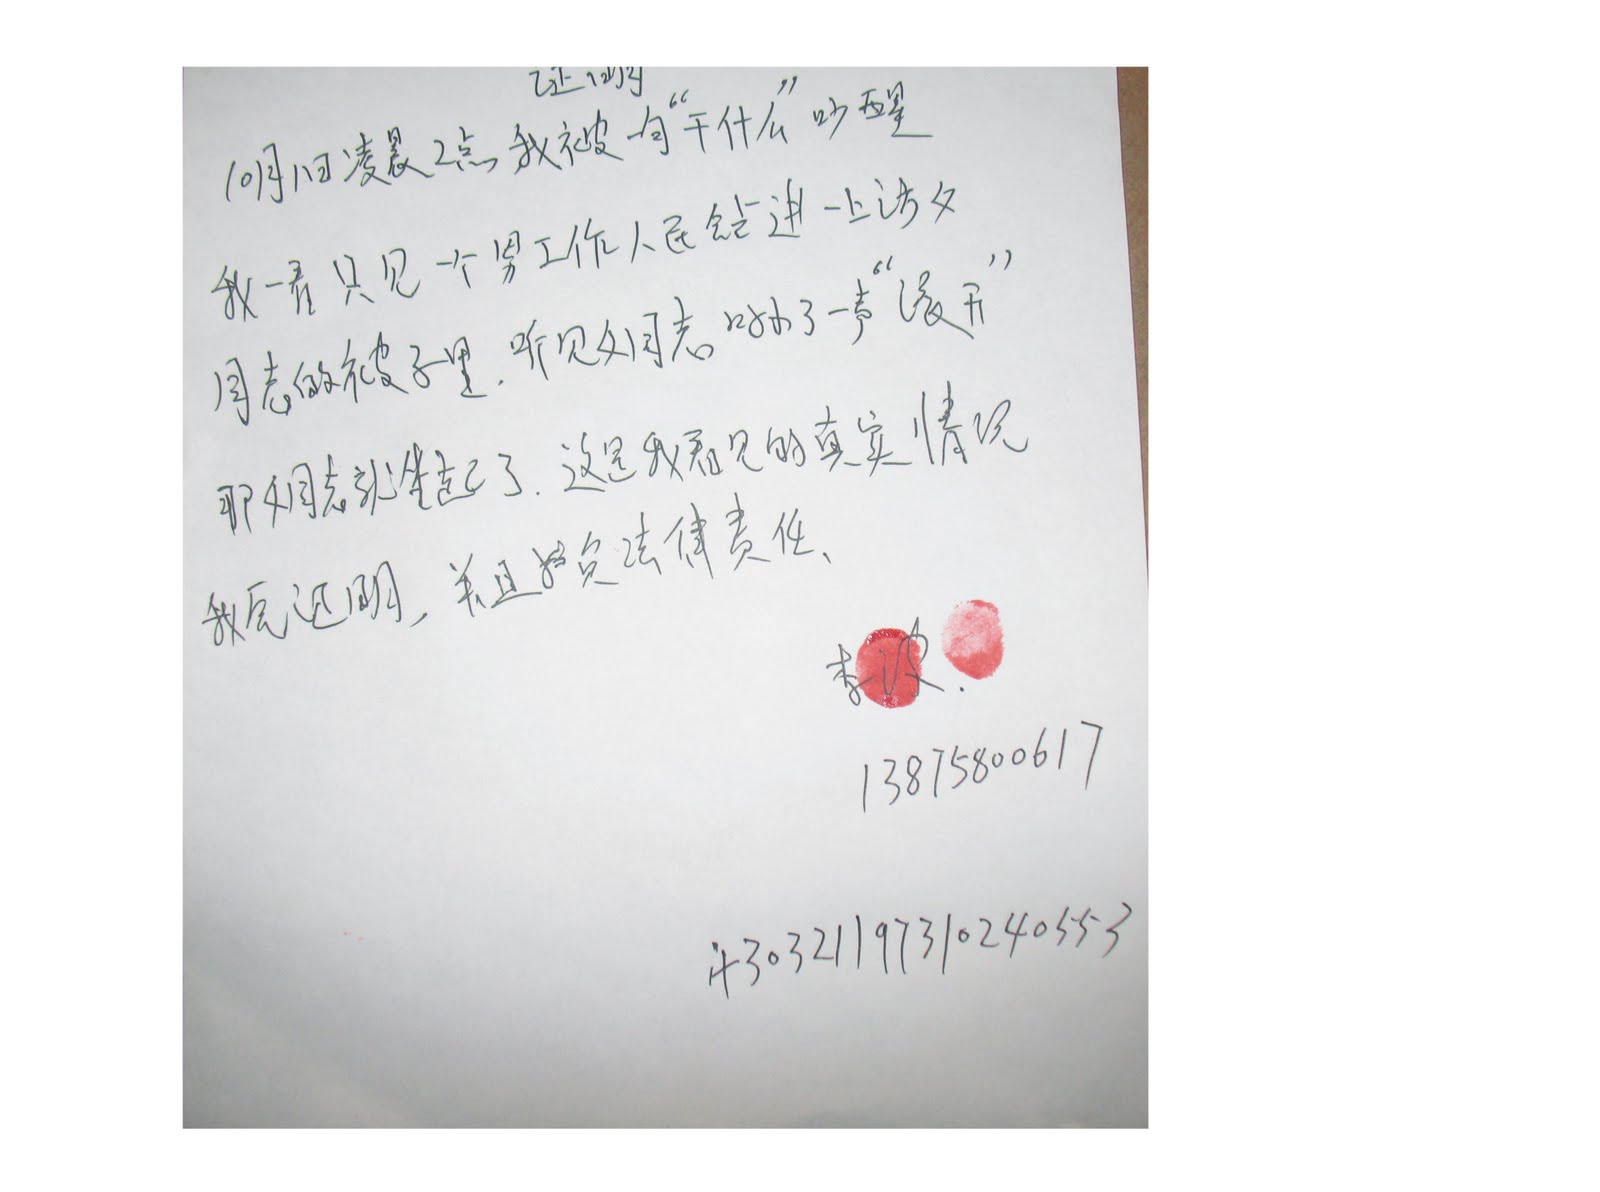 证明
10月1日凌晨2点,我被一句“干什么”吵醒
我一看只见一个男工作人民钻进一上访女
同志的被子里.听见女同志叫了一声“滚开”
那女同志就坐起了.这是我看见的真实情况
我愿证明,并且负法律责任、
李波.
13875800617
430321197310240553